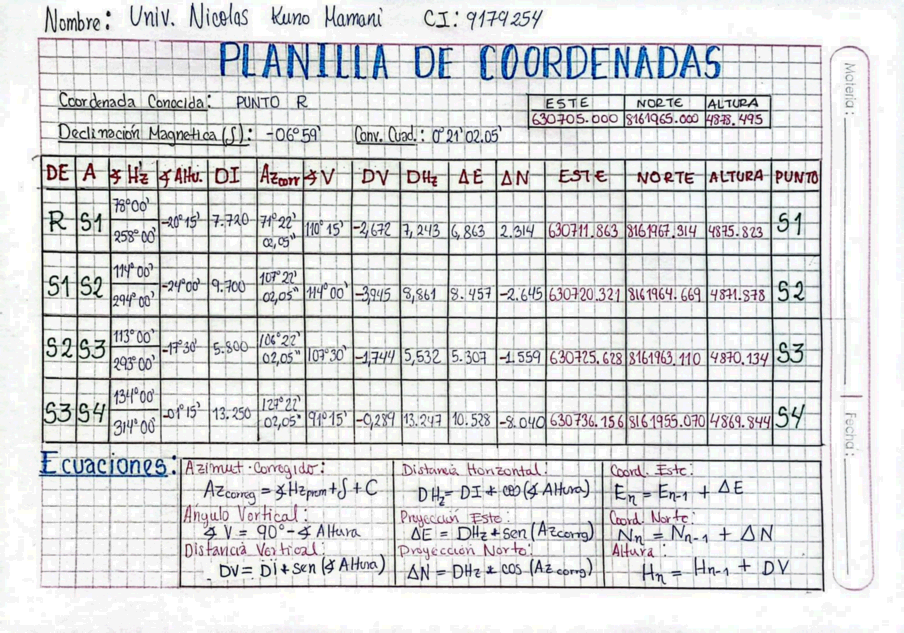 Nombre: Univ. Nicolas Kuno Mamani CI: 9179254
PLANILLA DE COORDENADAS
Coordenada Conocida: PUNTO R
ESTE NORTE ALTURA
630705.000 8161965.000 4878.495
Declinación Magnetica (δ): -06°59' Conv. Cuad.: 0°21'02.05'
DE A ∢Hz ∢Altu. DI Azcorr ∢V DV DHz ΔE ΔN ESTE NORTE ALTURA PUNTO
R S1 78°00' 258°00' -20°15' 7.720 71°22' 02,05" 110°15' -2,672 7,243 6,863 2.314 630711.863 8161967.314 4875.823 S1
S1 S2 114°00' 294°00' -24°00' 9.700 107°22' 02,05" 114°00' -3,945 8,861 8.457 -2.645 630720.321 8161964.669 4871.878 S2
S2 S3 113°00' 293°00' -17°30' 5.800 106°22' 02,05" 107°30' -1,744 5,532 5.307 -1.559 630725.628 8161963.110 4870.134 S3
S3 S4 134°00' 314°00' -01°15' 13.250 127°22' 02,05" 91°15' -0,289 13.247 10.528 -8.040 630736.156 8161955.070 4869.844 S4
Ecuaciones:
Azimut Corregido:
Azcorreg = ∢Hzprom + δ + C
Angulo Vertical:
∢V = 90° - ∢ Altura
Distancia Vertical:
DV = DI * sen (∢ Altura)
Distancia Horizontal:
DHz = DI * cos (∢ Altura)
Proyección Este:
ΔE = DHz * sen (Azcorrg)
Proyección Norte:
ΔN = DHz * cos (Azcorrg)
Coord. Este:
En = En-1 + ΔE
Coord. Norte:
Nn = Nn-1 + ΔN
Altura:
Hn = Hn-1 + DV
Materia:
Fecha: